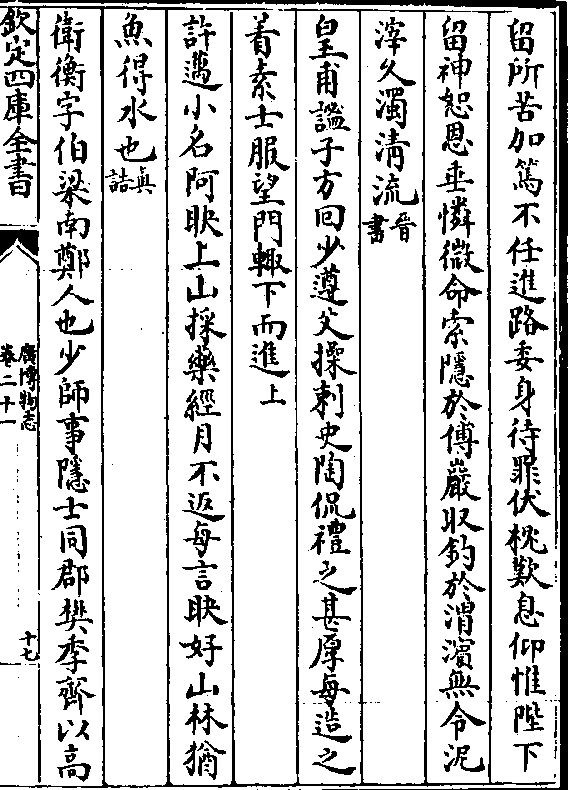 留所苦加篤不任進路委身待罪伏枕歎息仰惟陛下
留神恕恩垂憐微命索隱於傅巖収釣於渭濱無令泥
滓久濁清流晉書
皇甫謐子方回少遵父操刺史陶侃禮之甚厚每造之
着素士服望門輙下而進上
許邁小名阿映上山採藥經月不返每言映好山林猶
魚得水也真誥
衛衡字伯梁南鄭人也少師事隱士同郡樊季齊以高
欽定四庫全書
廣博物志
卷二十一
十七